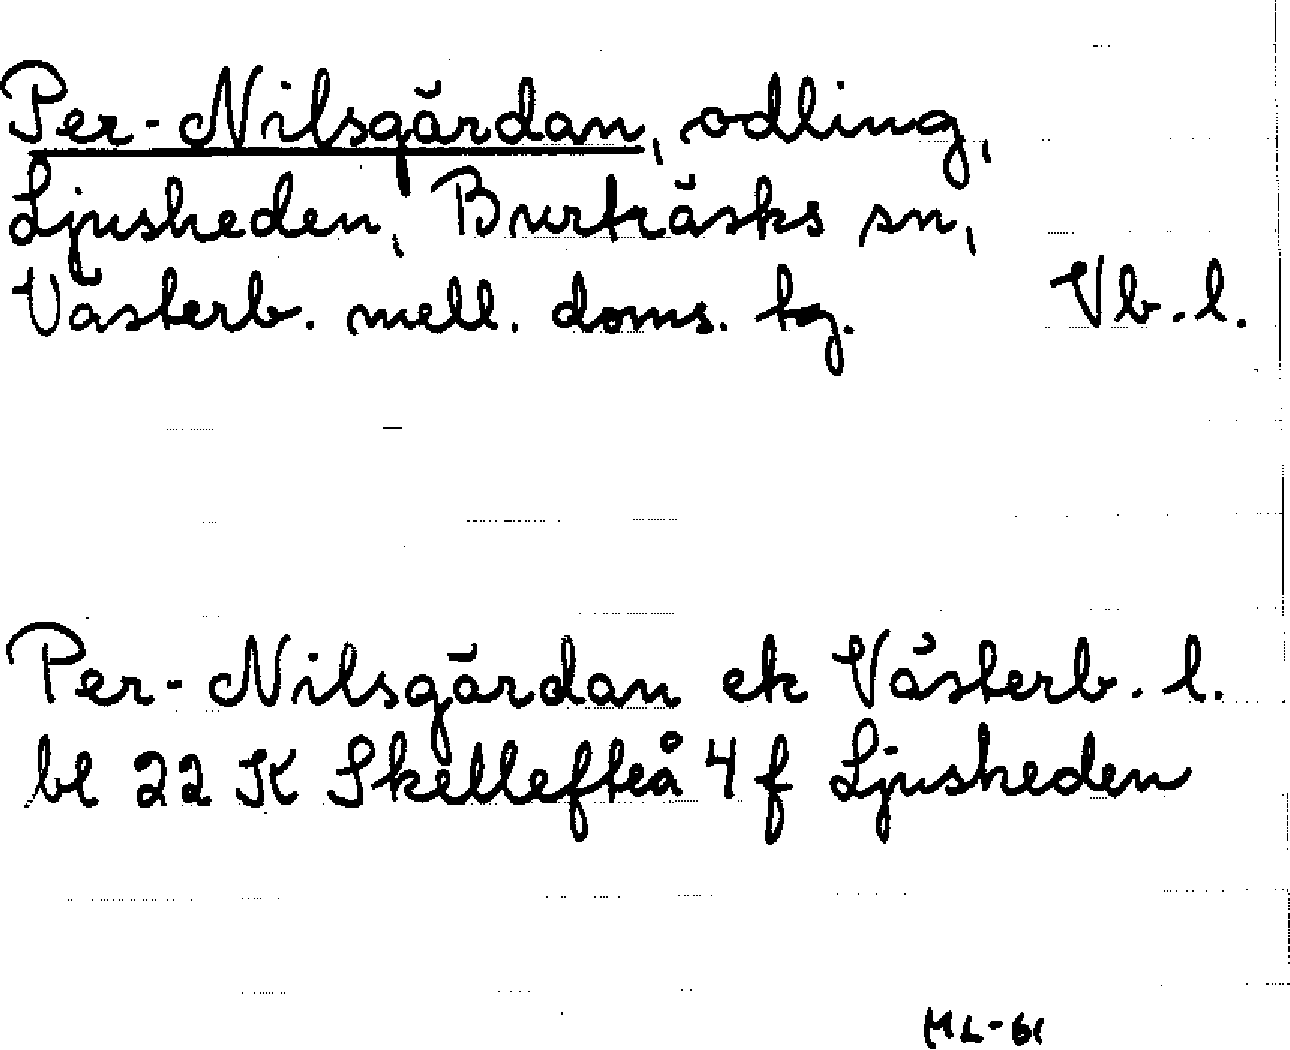 Per-Nilsgärdan, odling,
Ljusheden, Burträsks sn,
Västerb. mell. doms. tg. Vb.l.
Per-Nilsgärdan ek Västerb. l.
bl 22 K Skellefteå 4 f Ljusheden
ML-61